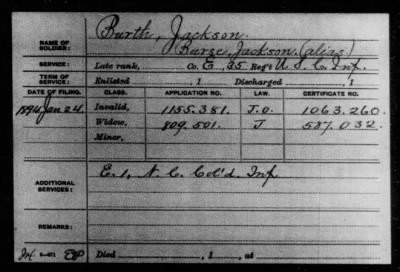 NAME OF SOLDIER: Burth, Jackson.
Burse, Jackson. (alias)
SERVICE: Late rank, Co. E, 35 Reg't U.S.C. Inf.
TERM OF SERVICE: Enlisted , 1 Discharged , 1
DATE OF FILING. CLASS. APPLICATION NO. LAW. CERTIFICATE NO.
1894 Jan 24. Invalid, 1155.381. J.O. 1063.260.
Widow, 809.501. J 587.032.
Minor,
ADDITIONAL SERVICES: E. 1, N.C. Col'd. Inf
REMARKS:
Died , 1 , at